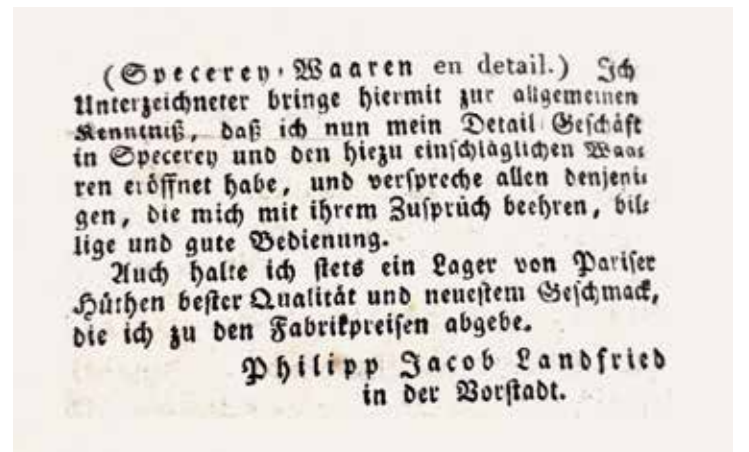 (Specerey-Waaren en detail.) Ich
Unterzeichneter bringe hiermit zur allgemeinen
Kenntniß, daß ich nun mein Detail Geschäft
in Specerey und den hiezu einschläglichen Waa-
ren eröffnet habe, und verspreche allen denjeni-
gen, die mich mit ihrem Zusprüch beehren, bil-
lige und gute Bedienung.
Auch halte ich stets ein Lager von Pariser
Hüthen bester Qualität und neuestem Geschmack,
die ich zu den Fabrikpreisen abgebe.
Philipp Jacob Landfried
in der Vorstadt.